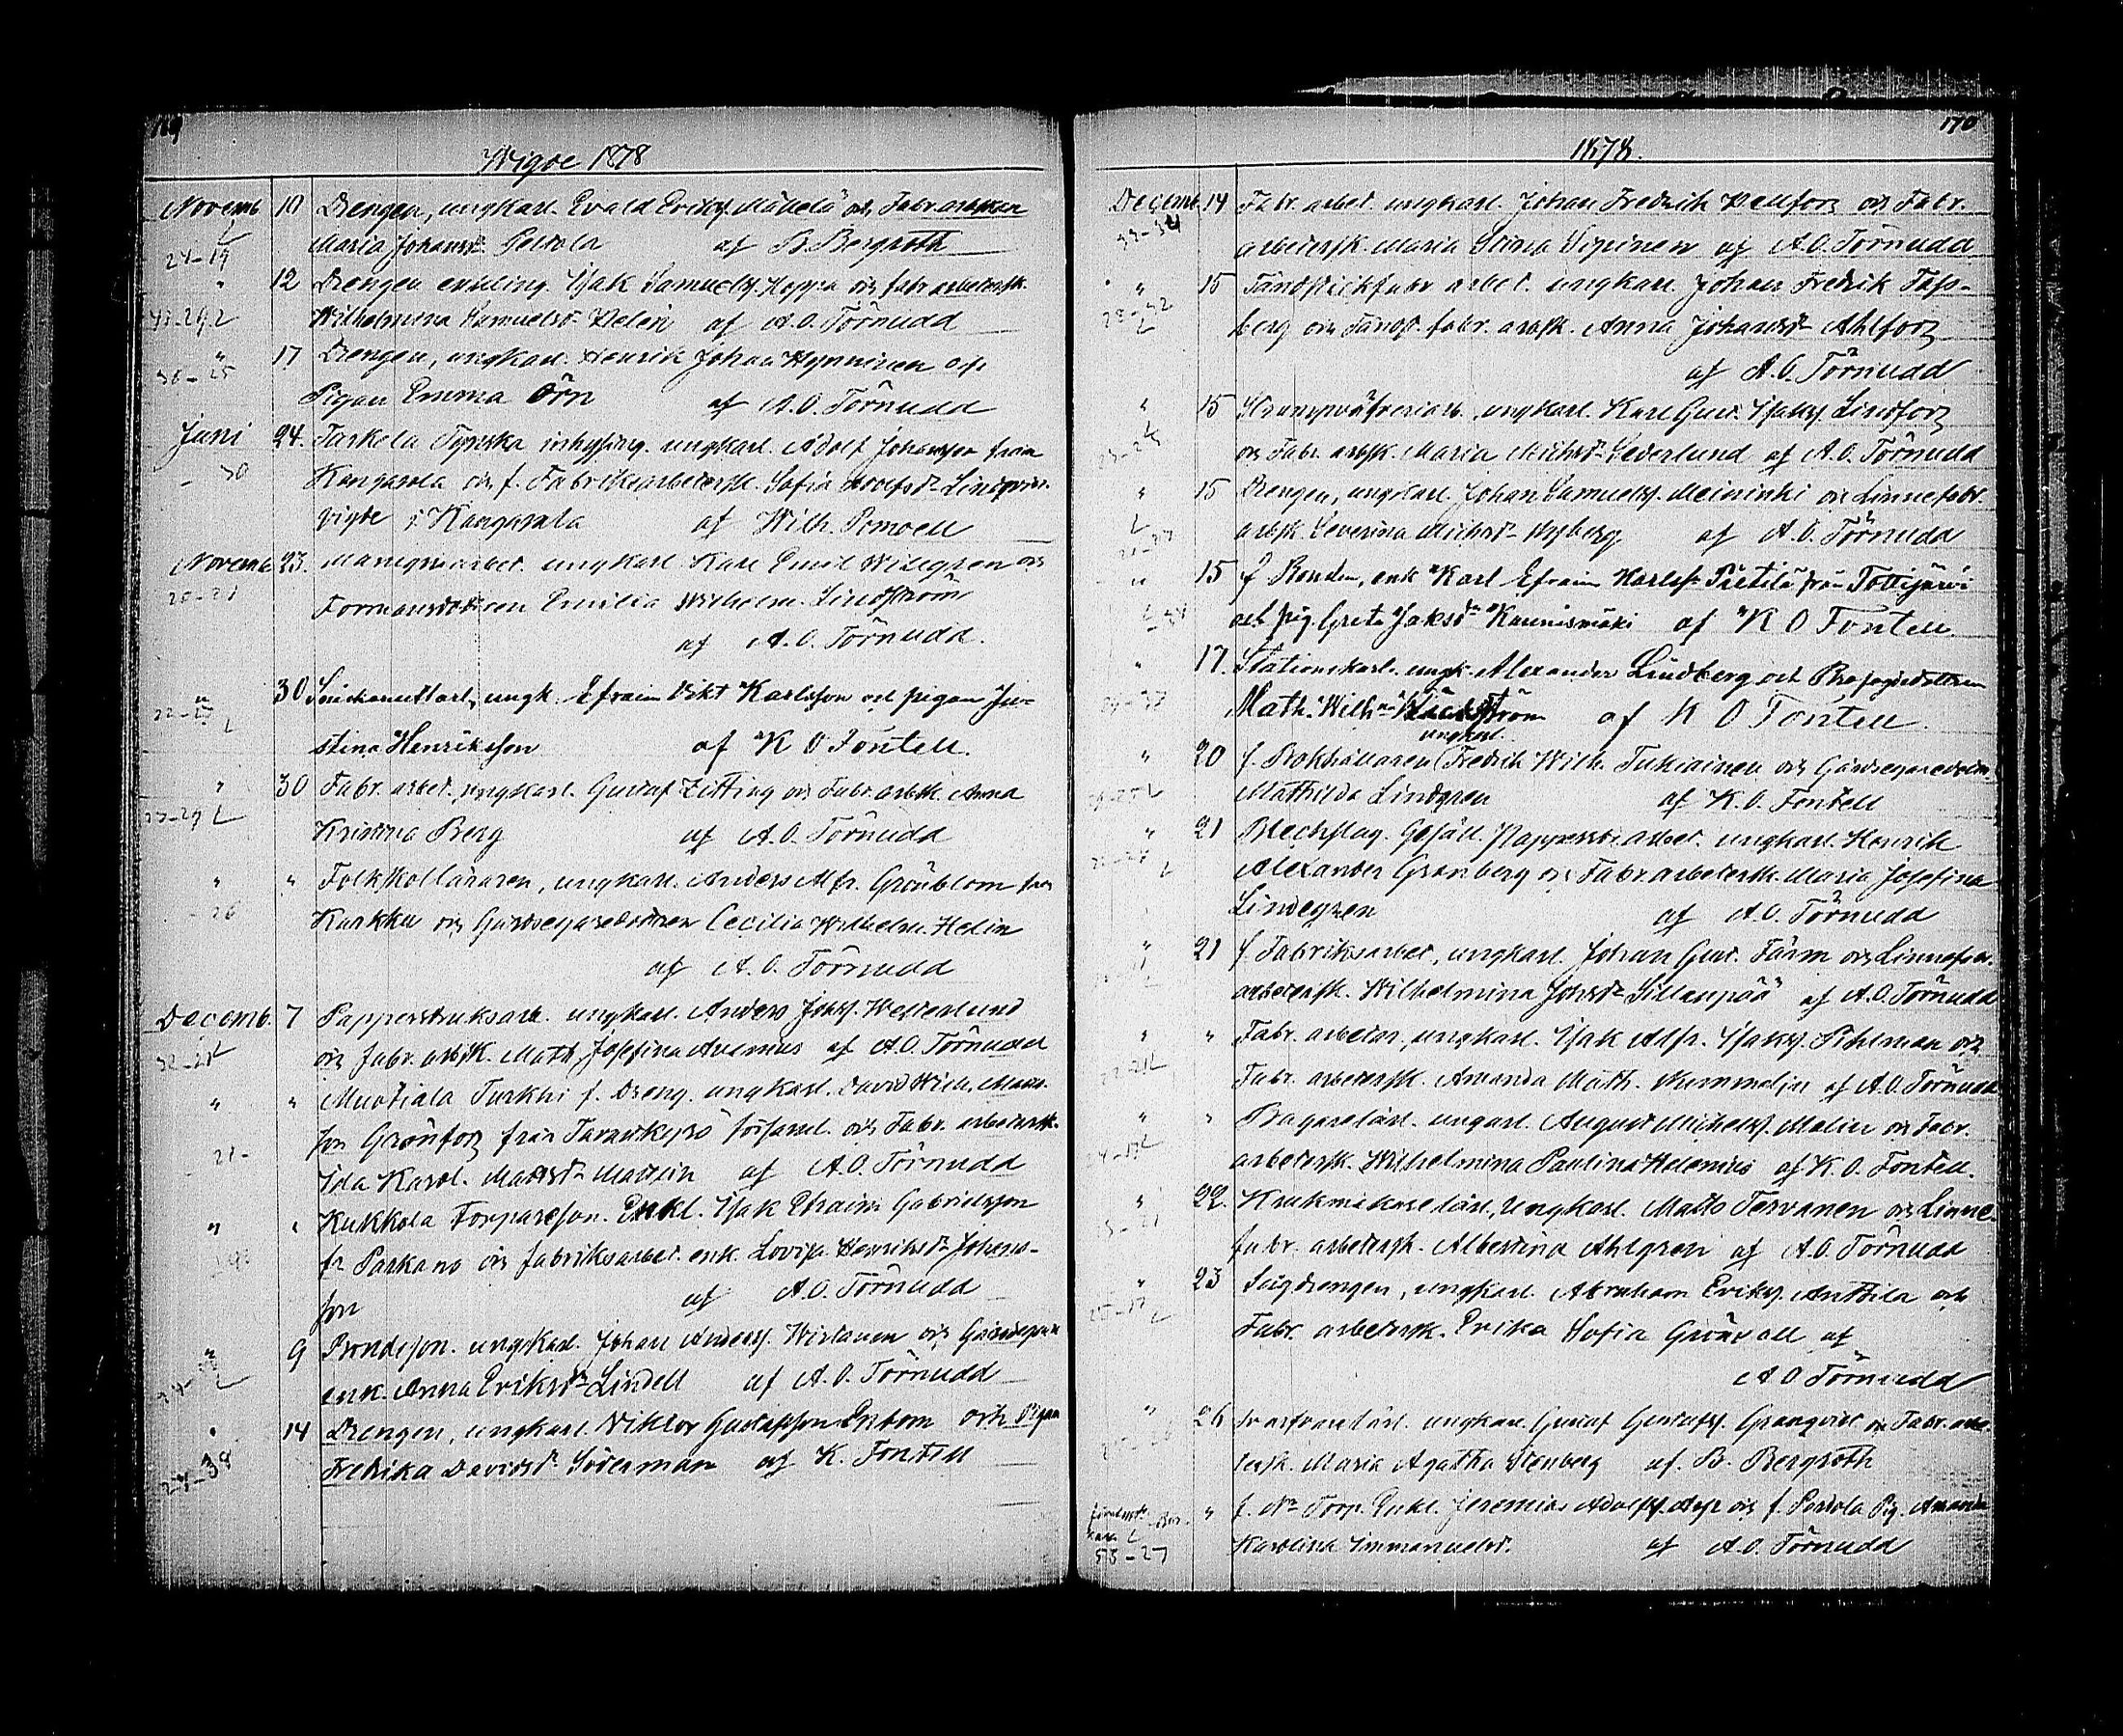 169
Wigde 1878
Novemb. 10 Drengen, ungkarl. Evald Eriks. Mäkelä och Fabr.
24-19 L Maria Johansdr Perkola af B. Bergroth
" 12 Drengen enkling. Isak Samuelss. Koppa och fabr arbetersk.
43-29 L Wilhelmina Samuelsdr Helin af A. O. Törnudd
" 17 Drengen, ungkarl. Henrik Johan Hynninen och
36-25 Pigan Emma Örn af A. O. Törnudd
Juni 24. Taskela inhysing. ungkarl. Adolf Johansson från
-30 Kangasala och f. Fabriksarbetersk. Sofia Adolfsdr Lindqvist.
vigde i Kangasala af Wilh. Pomoell
Novemb. 23. ungkarl Karl Emil Willgren och
20-21 Formansdottren Emilia Wilhelm. Lindström
af A. O. Törnudd.
" 30 Snickarelärl, ungk. Efraim Vikt Karlsson och pigan Ju-
22-25 L stina Henriksson af K O Fontell.
" 30 Fabr. arbet. ungkarl. Gustaf Zitting och Fabr. arbsk. Anna
23-29 L Kristina Berg af A. O. Törnudd
" " Folkskolläraren, ungkarl. Anders Alfr. Grönblom från
-26 Karkku och Gårdsegaredottren Cecilia Wilhelm. Helin
af A. O. Törnudd
Decemb. 7 Pappersbruksarb. ungkarl. Anders Johss. Westerlund
32-21 L och fabr. arbsk. Math. Josefina Avenius af A. O. Törnudd
" " Muotiala Turkki f. Dreng. ungkarl. David Wilh. Matts-
son Grönfors från Tavastkyro församl. och Fabr. arbetersk.
21- Ida Karol. Mattsdr Mattlin af A. O. Törnudd
" " Kukkola Torpareson. Enkl. Isak Efraim Gabrielsson
fr Parkano och fabriksarbet. enk. Lovisa Henriksdr Johans-
son af A. O. Törnudd
" 9 Bondeson. ungkarl. Johan Anderss. Wirtanen och Gårdsegare
enk. Anna Eriksdr Lindell af A. O. Törnudd
" 14 Drengen, ungkarl. Viktor Gustafsson Enbom och Pigan
24-38 Fredrika Davidsdr Söderman af K. Fontell
170
1878.
Decemb. 14 Fabr. arbet. ungkarl. Johan Fredrik Hellfors och Fabr.
33-34 arbetersk. Maria Stina Sipinen af A. O. Törnudd
" 15 Tändstickfabr arbet. ungkarl Johan Fredrik Fass-
28-22 L berg och Tändst. fabr. arbsk. Anna Johansdr Ahlfors
af A. O. Törnudd
" 15 ungkarl. Karl Gust. Isakss. Lindfors
L och Fabr. arbsk. Maria Michsdr Sederlund af A. O. Törnudd
" 15 Drengen, ungkarl. Johan Samuelss. Meininki och Linnefabr.
L arbsk. Severina Michsdr Nyberg af A. O. Törnudd
" 15 f Bonden, enk Karl Efraim Karlss. Pietilä från Tottijärvi
och pig. Greta Jaksdr Kaunismäki af K O Fontell
" 17. Stationskarl. ungk. Alexander Lindberg och
Math. Wilhna af K O Fontell.
ungkarl.
" 20 f. Bokhållaren Fredrik Wilh. Tukiainen och Gårdsegaredotn.
Mathilda Lindgren af K. O. Fontell
" 21 Bleckslag. Gesäll. ungkarl. Henrik
L Alexander Granberg och Fabr. arbetersk. Maria Josefina
Lindegren af A. O. Törnudd
" 21 f. Fabriksarbet, ungkarl. Johan Gust. Färm och Linnefabr.
arbetersk. Wilhelmina Johsdr Sillanpää af A. O. Törnudd
" " Fabr. arbetar, ungkarl. Isak Alfr. Isakss. Pihlman och
Fabr. arbetersk. Amanda Math. Nummelin af A. O. Törnudd
" " Bagarelärl. ungarl. August Michelss. Malin och Fabr.
arbetersk. Wilhelmina Paulina Helenius af K. O. Fontell.
" 22. Krukmakarelärl., Ungkarl. Matts Tervanen och Linne-
fabr. arbetersk. Albertina Ahlgren af A. O. Törnudd
" 23 Sågdrengen, ungkarl. Abraham Erikss. Anttila och
Fabr. arbetersk. Erika Sofia Grönvall af
A O Törnudd
" 26 ungkarl. Gustaf Gustafss. Granqvist och Fabr. arbe-
tersk. Maria Agatha Stenberg af. B. Bergroth
" f. Nr Torp. Enkl. Jeremias Adolfss. och f. Perkola Pig. Amanda
53-27 Karolina Immanuelsdr. af A. O. Törnudd